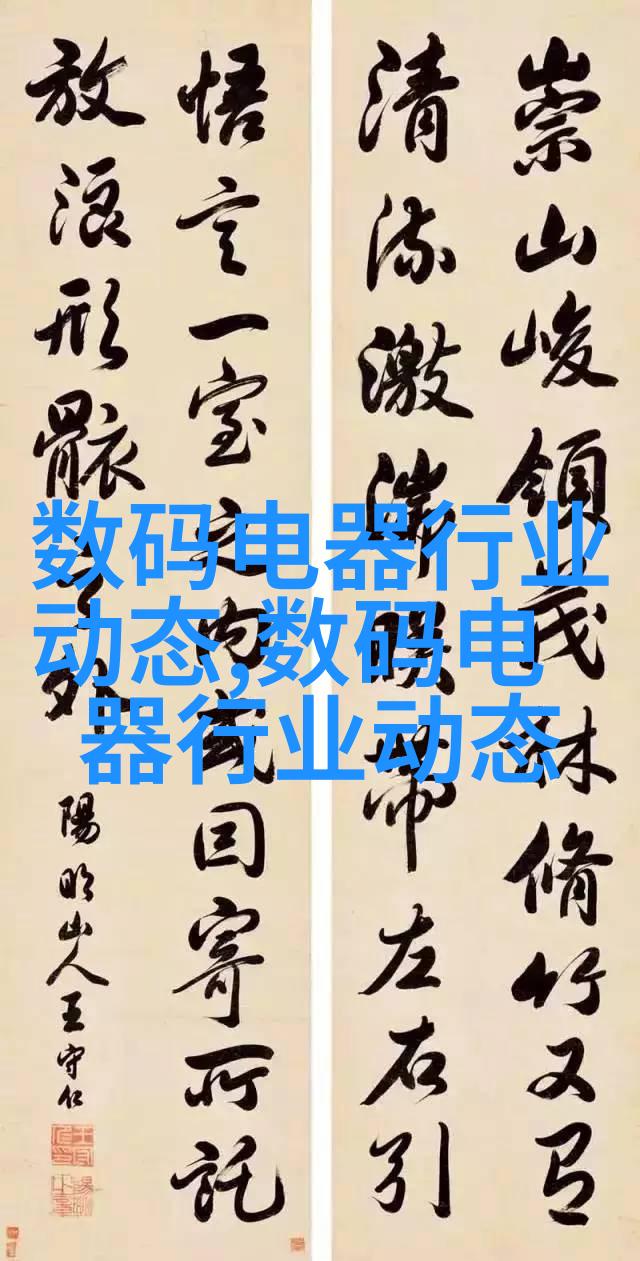 崇山峻領茂林脩竹又有
清流激湍暎帶左右引
悟言一室之内或因寄所託
放浪形骸之外
陽明山人王守仁
数码电器行业
动态,数码电
器行业动态